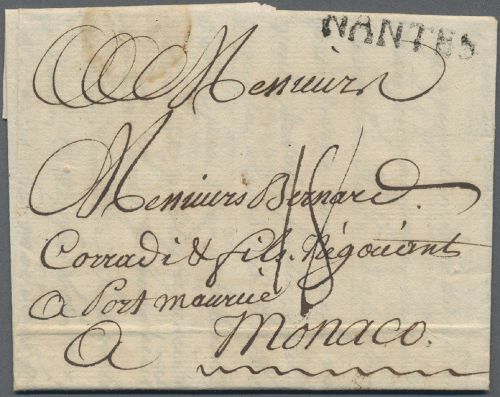 NANTES
Messieurs
Messieurs Bernard
Corradi & fils. Négociant
a Port maurice
A Monaco.
18